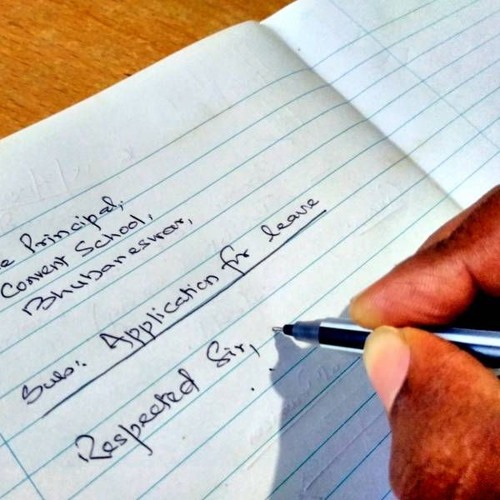 e Principal,
Convent School,
Bhubaneswar,
Sub: Application for leave
Respected Sir,